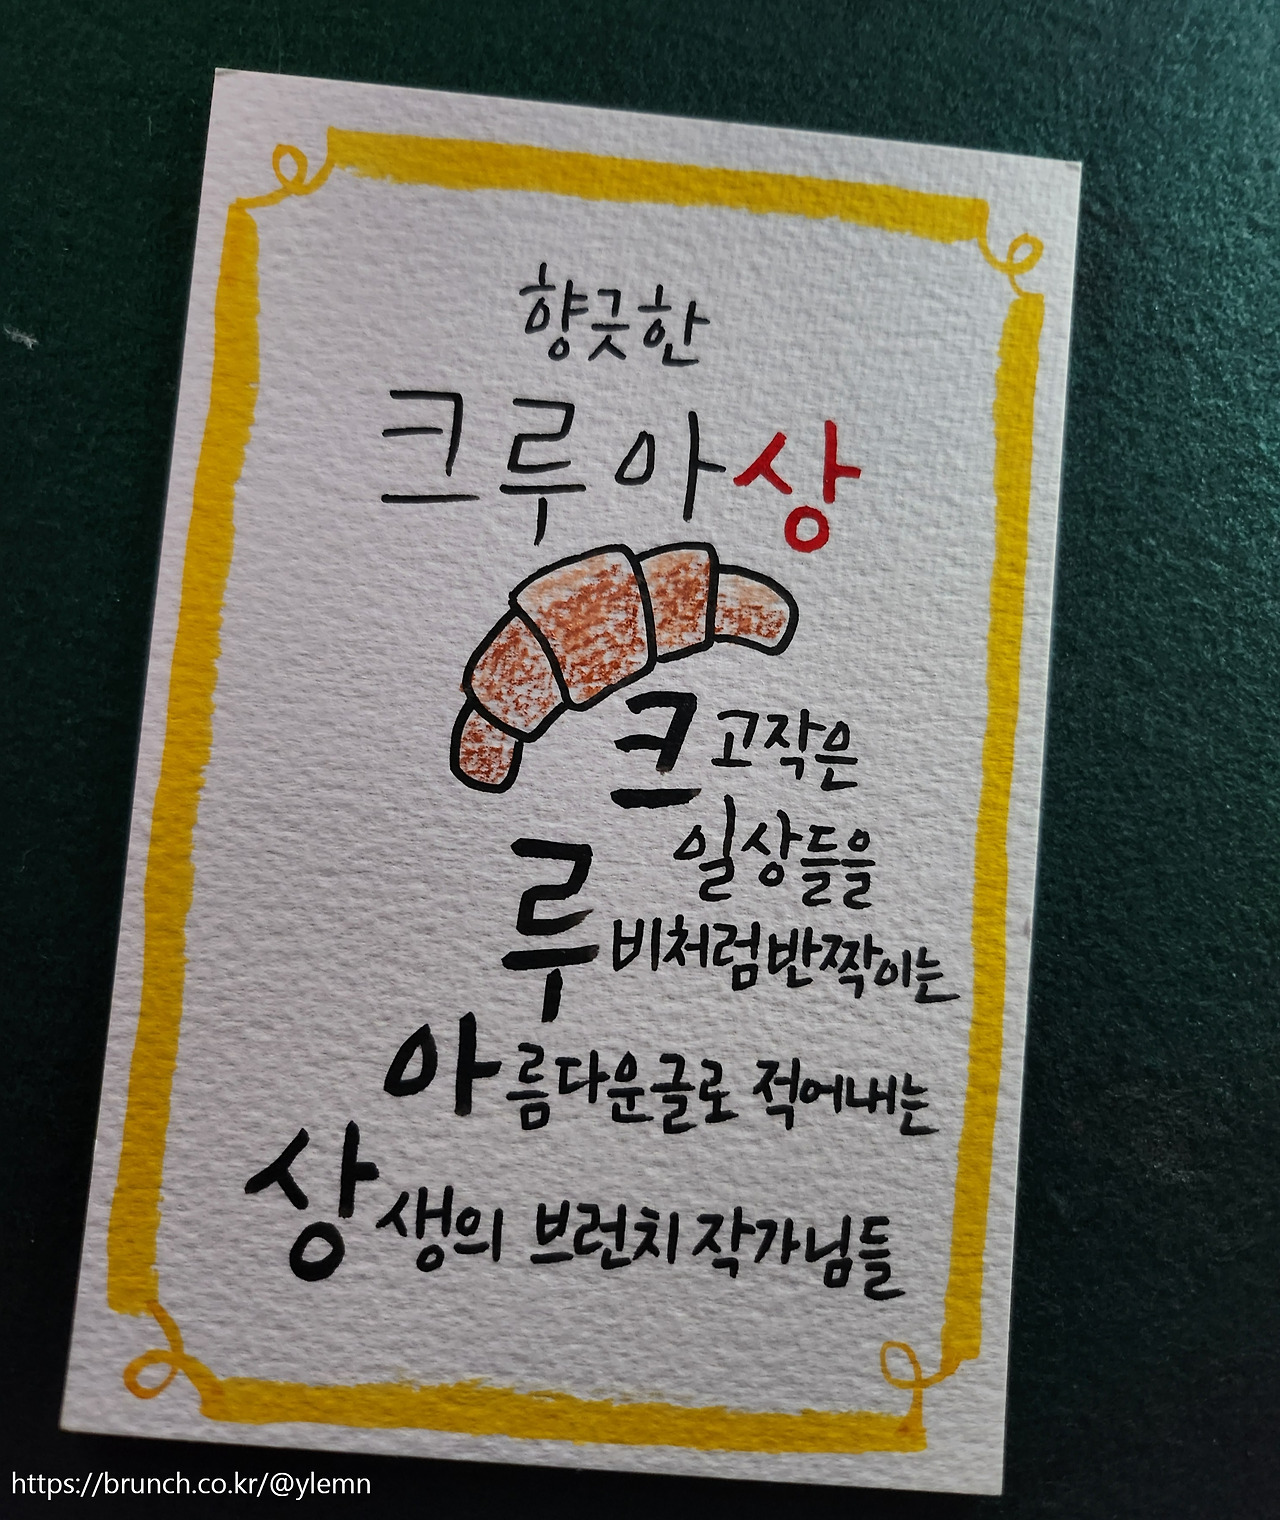 향긋한
크루아상
크고작은
일상들을
루비처럼반짝이는
아름다운글로 적어내는
상생의 브런치작가님들
https://brunch.co.kr/@ylemn